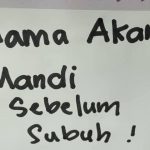 ama Akan
Mandi
Sebelum
Subuh !